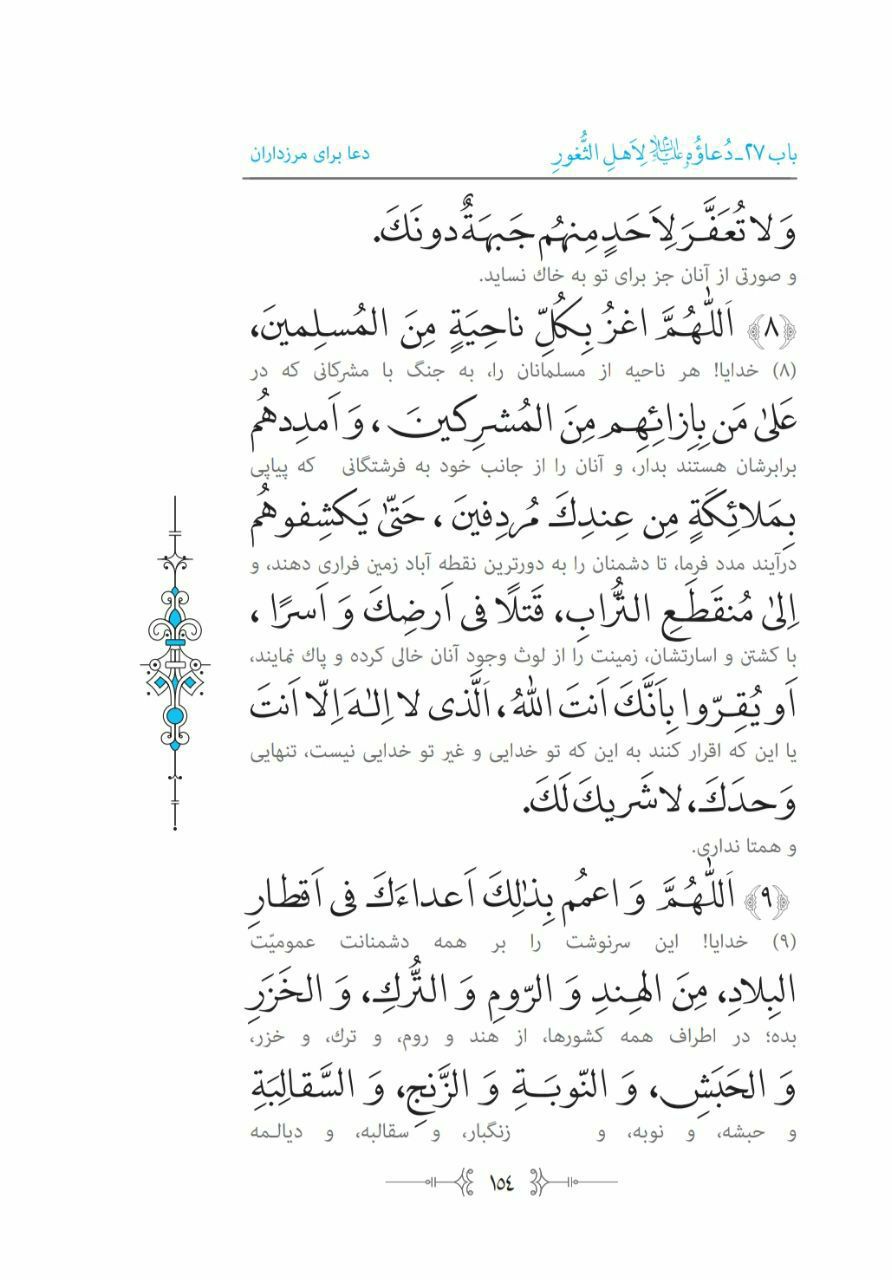 باب ۲۷ـ دُعاؤُهُ علیه‌السلام لِاَهلِ الثُّغورِ
دعا برای مرزداران
وَ لا تُعَفَّرَ لِاَحَدٍ مِنهُم جَبهَةٌ دونَكَ.
و صورتی از آنان جز برای تو به خاك نساید.
﴿۸﴾ اَللّٰهُمَّ اغزُ بِكُلِّ ناحِيَةٍ مِنَ المُسلِمينَ،
(۸) خدایا! هر ناحیه از مسلمانان را، به جنگ با مشرکانی که در
عَلىٰ مَن بِاِزائِهِم مِنَ المُشرِكينَ، وَ اَمدِدهُم
برابرشان هستند بدار، و آنان را از جانب خود به فرشتگانی که پیاپی
بِمَلائِكَةٍ مِن عِندِكَ مُردِفينَ، حَتّىٰ يَكشِفوهُم
درآیند مدد فرما، تا دشمنان را به دورترین نقطه آباد زمین فراری دهند، و
اِلىٰ مُنقَطَعِ التُّرابِ، قَتلًا فى اَرضِكَ وَ اَسرًا،
با کشتن و اسارتشان، زمینت را از لوث وجود آنان خالی کرده و پاك نمایند،
اَو يُقِرّوا بِاَنَّكَ اَنتَ اللّٰهُ، اَلَّذى لا اِلـٰهَ اِلّا اَنتَ
یا این که اقرار کنند به این که تو خدایی و غیر تو خدایی نیست، تنهایی
وَحدَكَ، لا شَريكَ لَكَ.
و همتا نداری.
﴿۹﴾ اَللّٰهُمَّ وَ اعمُم بِذٰلِكَ اَعداءَكَ فى اَقطارِ
(۹) خدایا! این سرنوشت را بر همه دشمنانت عمومیّت
البِلادِ، مِنَ الهِندِ وَ الرّومِ وَ التُّركِ، وَ الخَزَرِ
بده؛ در اطراف همه کشورها، از هند و روم، و ترك، و خزر،
وَ الحَبَشِ، وَ النّوبَـةِ وَ الزَّنجِ، وَ السَّقالِبَةِ
و حبشه، و نوبه، و زنگبار، و سقالبه، و دیالـمه
١٥٤